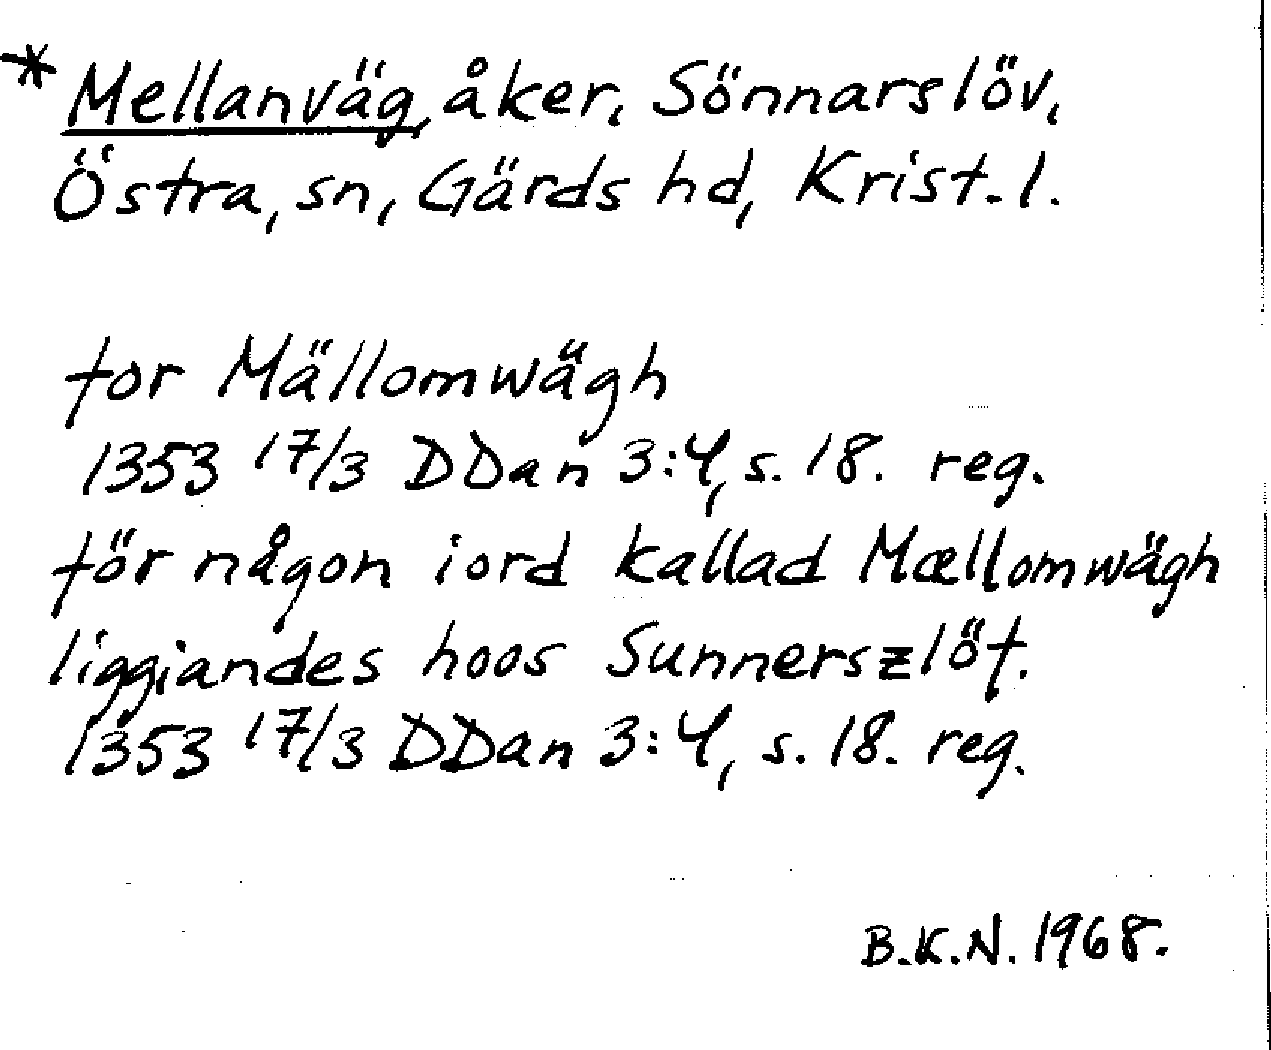 * Mellanväg, åker, Sönnarslöv,
Östra, sn, Gärds hd, Krist. l.
for Mällomwägh
1353 17/3 DDan 3:4, s. 18. reg.
för någon iord kallad Mællomwägh
liggiandes hoos Sunnerszlöf.
1353 17/3 DDan 3:4, s. 18. reg.
B.K.N. 1968.